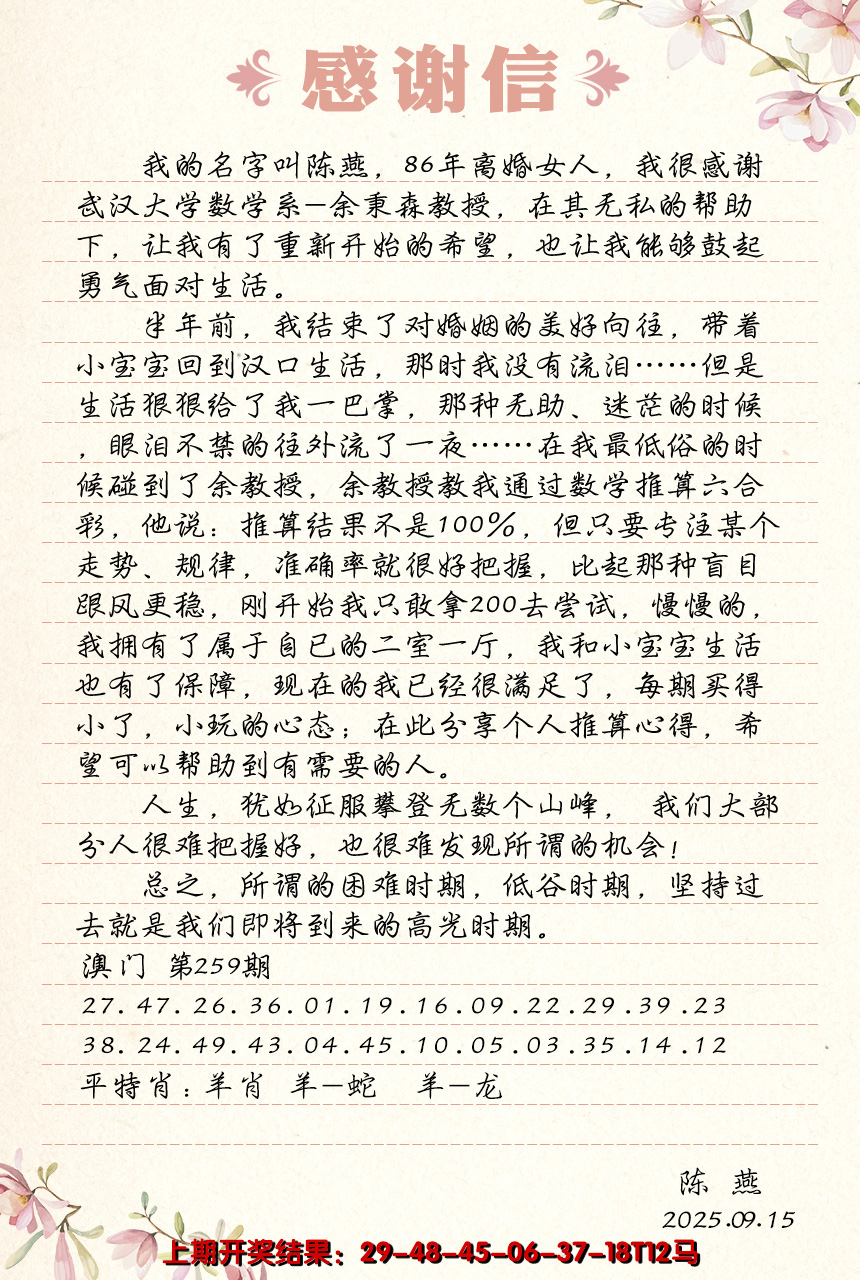 感谢信
我的名字叫陈燕，86年离婚女人，我很感谢
武汉大学数学系—余秉森教授，在其无私的帮助
下，让我有了重新开始的希望，也让我能够鼓起
勇气面对生活。
半年前，我结束了对婚姻的美好向往，带着
小宝宝回到汉口生活，那时我没有流泪……但是
生活狠狠给了我一巴掌，那种无助、迷茫的时候
，眼泪不禁的往外流了一夜……在我最低俗的时
候碰到了余教授，余教授教我通过数学推算六合
彩，他说：推算结果不是100%，但只要专注某个
走势、规律，准确率就很好把握，比起那种盲目
跟风更稳，刚开始我只敢拿200去尝试，慢慢的，
我拥有了属于自已的二室一厅，我和小宝宝生活
也有了保障，现在的我已经很满足了，每期买得
小了，小玩的心态；在此分享个人推算心得，希
望可以帮助到有需要的人。
人生，犹如征服攀登无数个山峰， 我们大部
分人很难把握好，也很难发现所谓的机会！
总之，所谓的困难时期，低谷时期，坚持过
去就是我们即将到来的高光时期。
澳门 第259期
27.47.26.36.01.19.16.09.22.29.39.23
38.24.49.43.04.45.10.05.03.35.14.12
平特肖：羊肖 羊—蛇 羊—龙
陈 燕
2025.09.15
上期开奖结果：29-48-45-06-37-18T12马